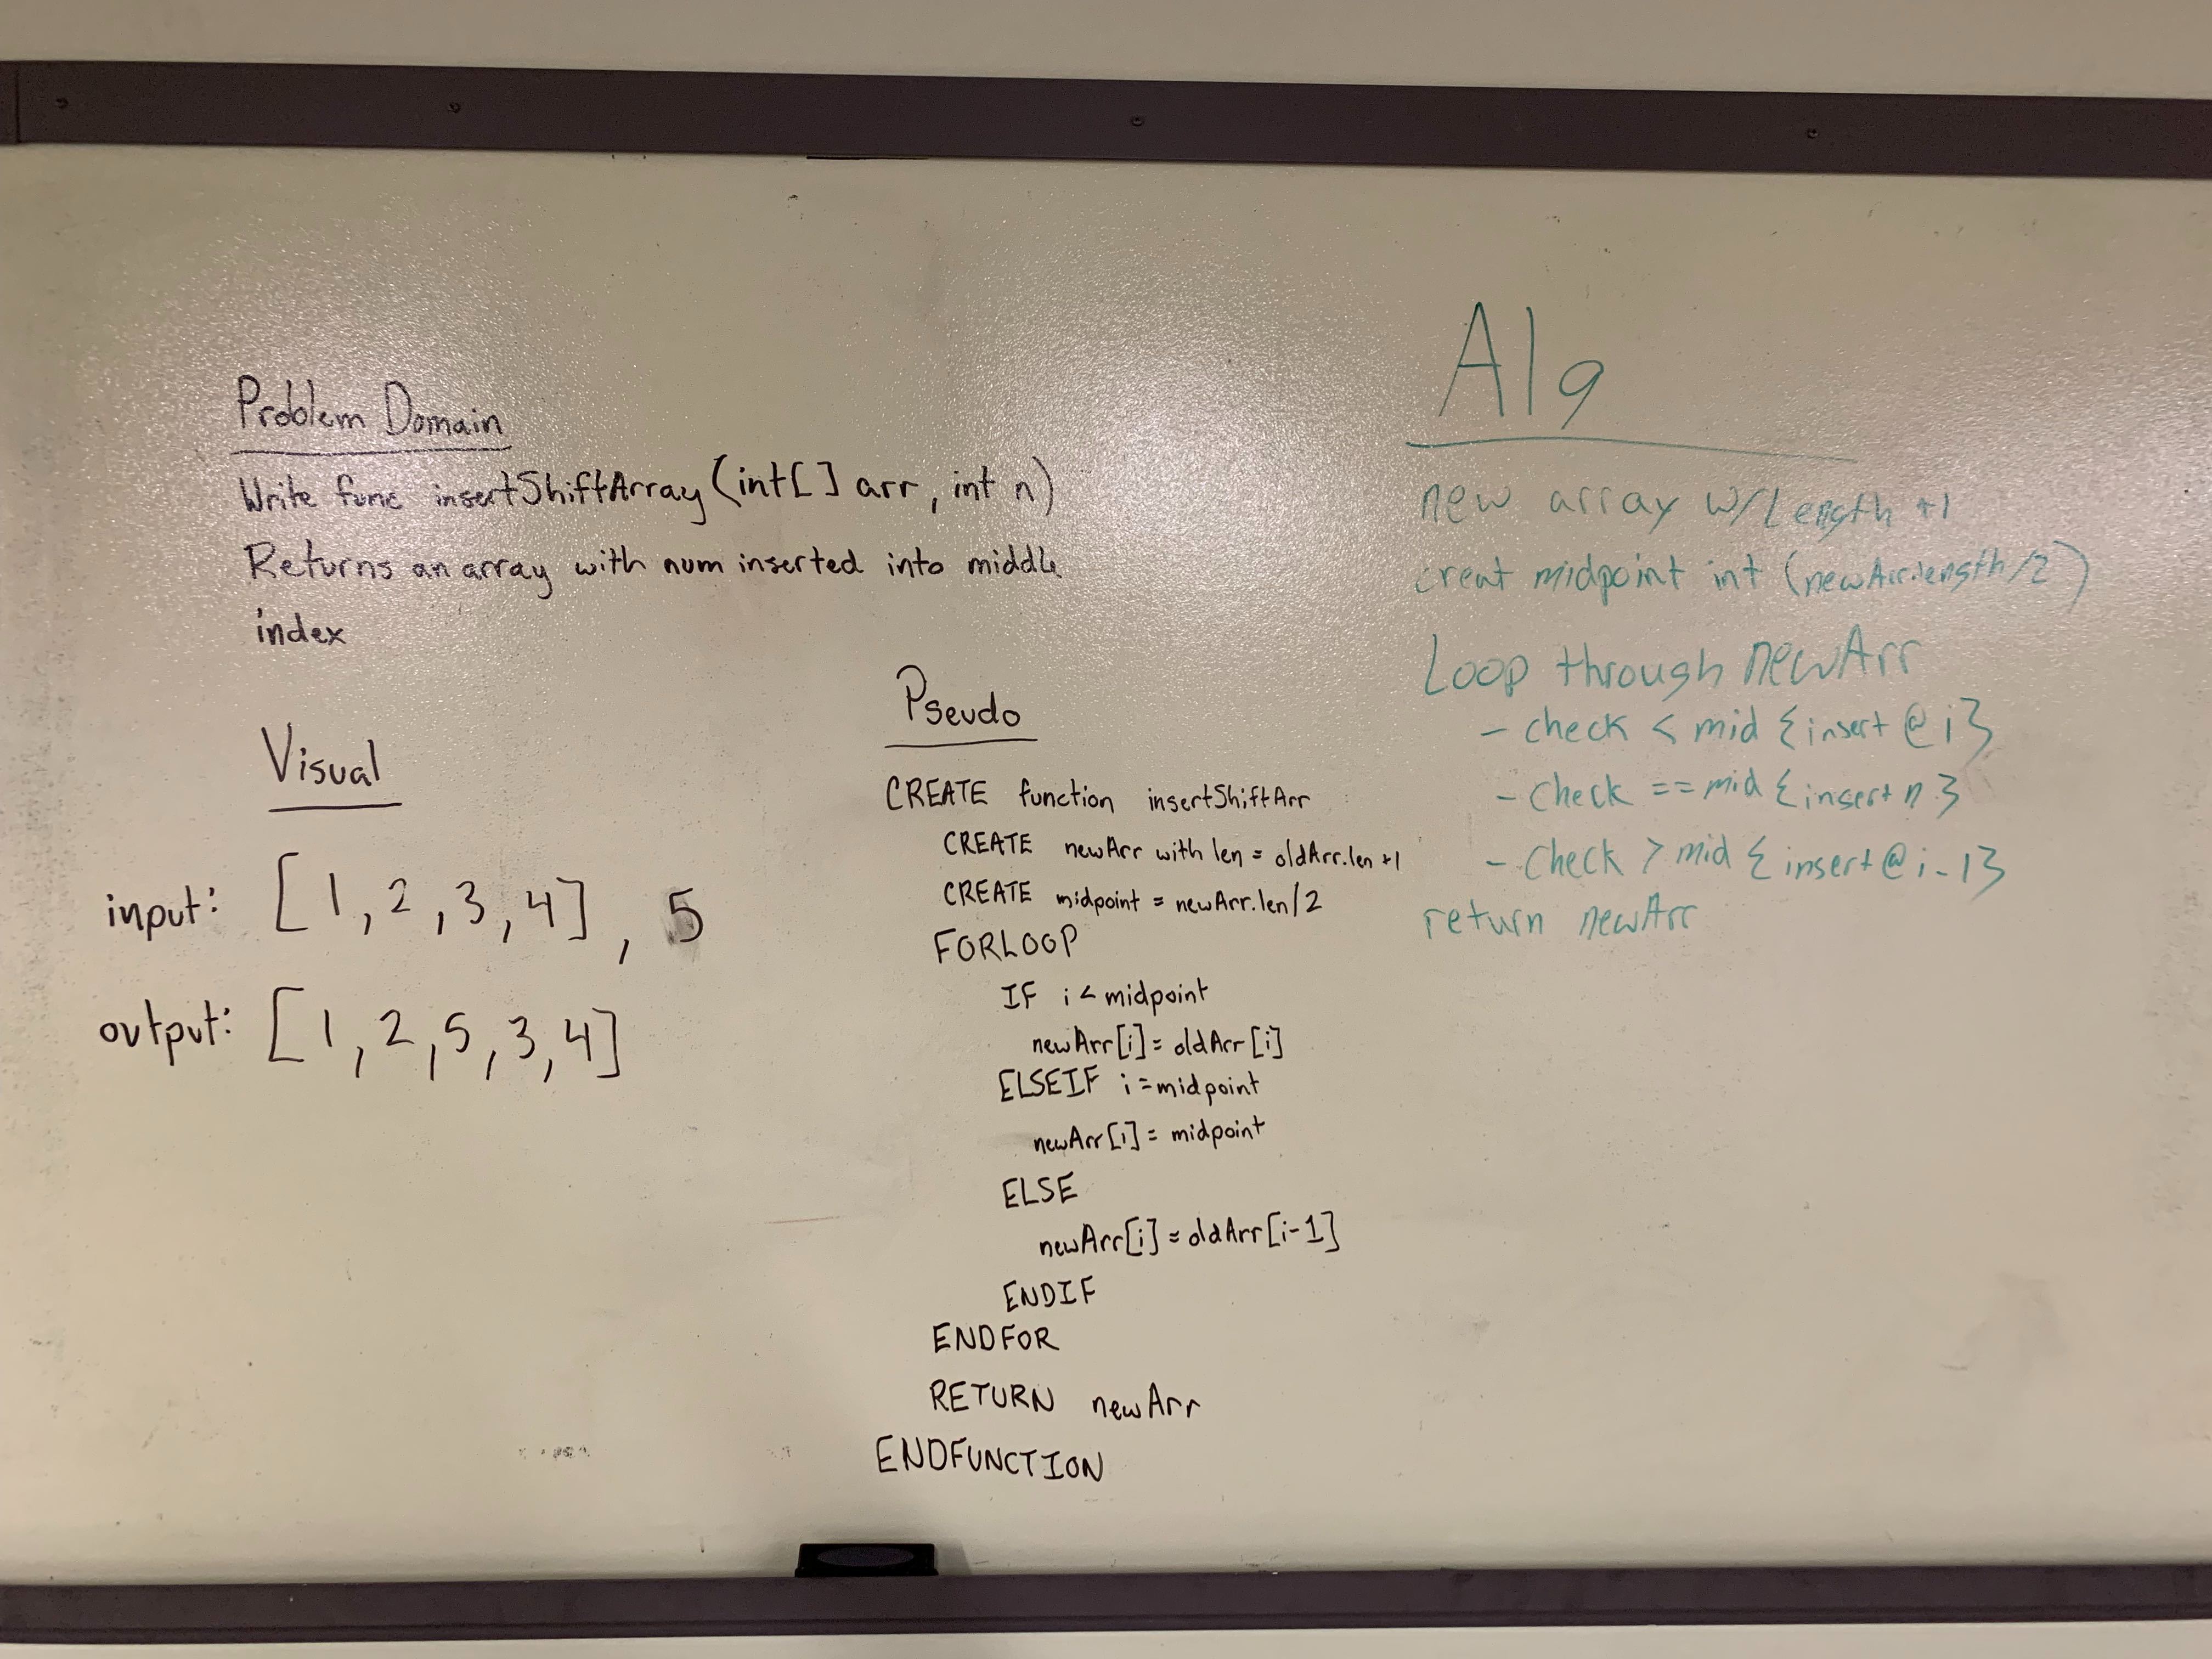 Problem Domain
Write func insertShiftArray (int[] arr, int n)
Returns an array with num inserted into middle
index
Visual
input: [1, 2, 3, 4], 5
output: [1, 2, 5, 3, 4]
Pseudo
CREATE function insertShiftArr
CREATE newArr with len = oldArr.len +1
CREATE midpoint = newArr.len/2
FORLOOP
IF i < midpoint
newArr[i] = oldArr[i]
ELSEIF i = midpoint
newArr[i] = midpoint
ELSE
newArr[i] = oldArr[i-1]
ENDIF
ENDFOR
RETURN newArr
ENDFUNCTION
Alg
new array w/Length +1
creat midpoint int (newArr.length/2)
Loop through newArr
- check < mid {insert @ i}
- check == mid {insert n}
- check > mid {insert @ i-1}
return newArr